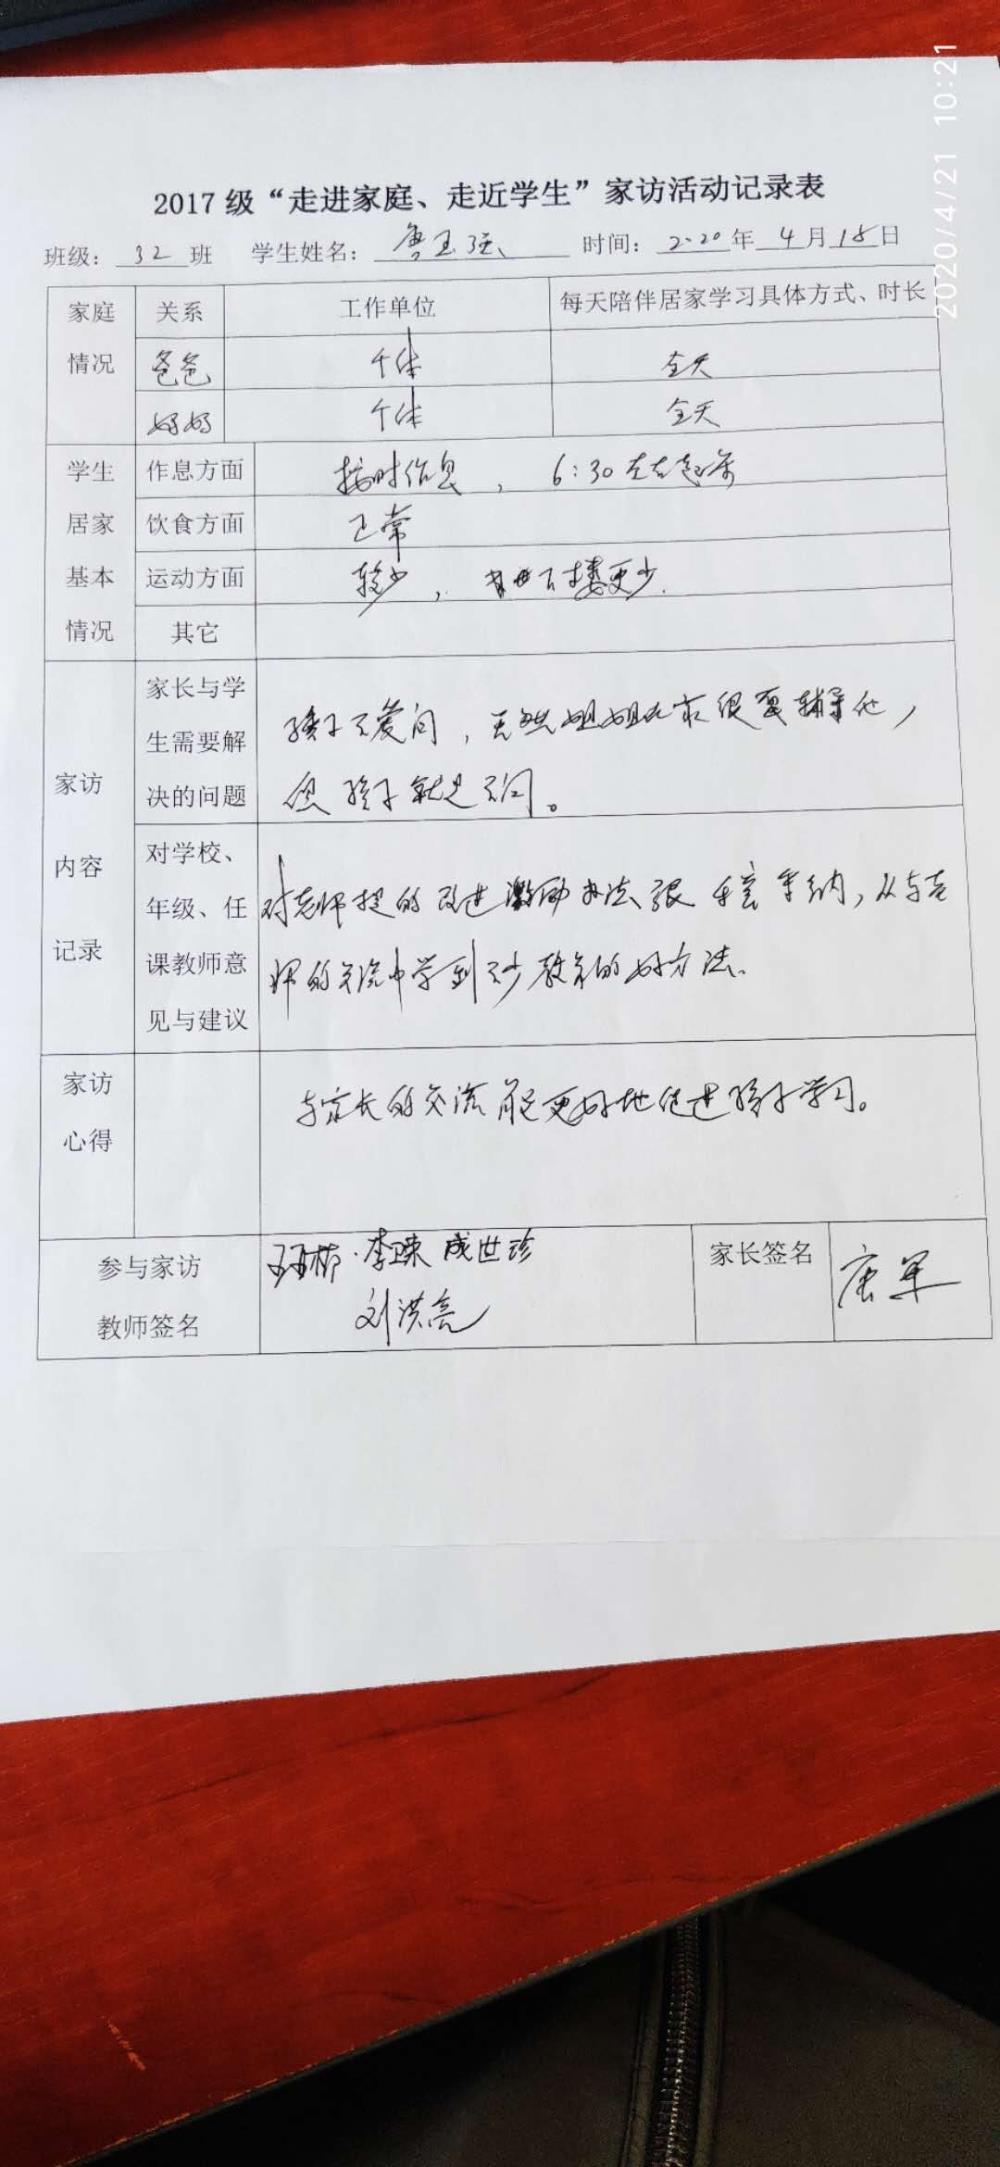 2020/4/21 10:21
2017 级“走进家庭、走近学生”家访活动记录表
班级: 32 班 学生姓名: 唐玉强 时间: 2020 年 4 月 18 日
家庭情况 关系 工作单位 每天陪伴居家学习具体方式、时长
爸爸 个体 全天
妈妈 个体 全天
学生居家基本情况 作息方面 按时作息, 6:30左右起床
饮食方面 正常
运动方面 较少, 下楼更少.
其它
家访内容记录
家长与学
生需要解
决的问题
孩子不爱问, 姐姐在家很要辅导他,
但孩子就是不问。
对学校、
年级、任
课教师意
见与建议
对老师提的改进激励办法很 采纳, 从与老
师的交流中学到不少教育的好方法.
家访
心得
与家长的交流能更好地促进孩子学习。
参与家访
教师签名
李卫荣 成世珍
刘洪亮
家长签名 唐军